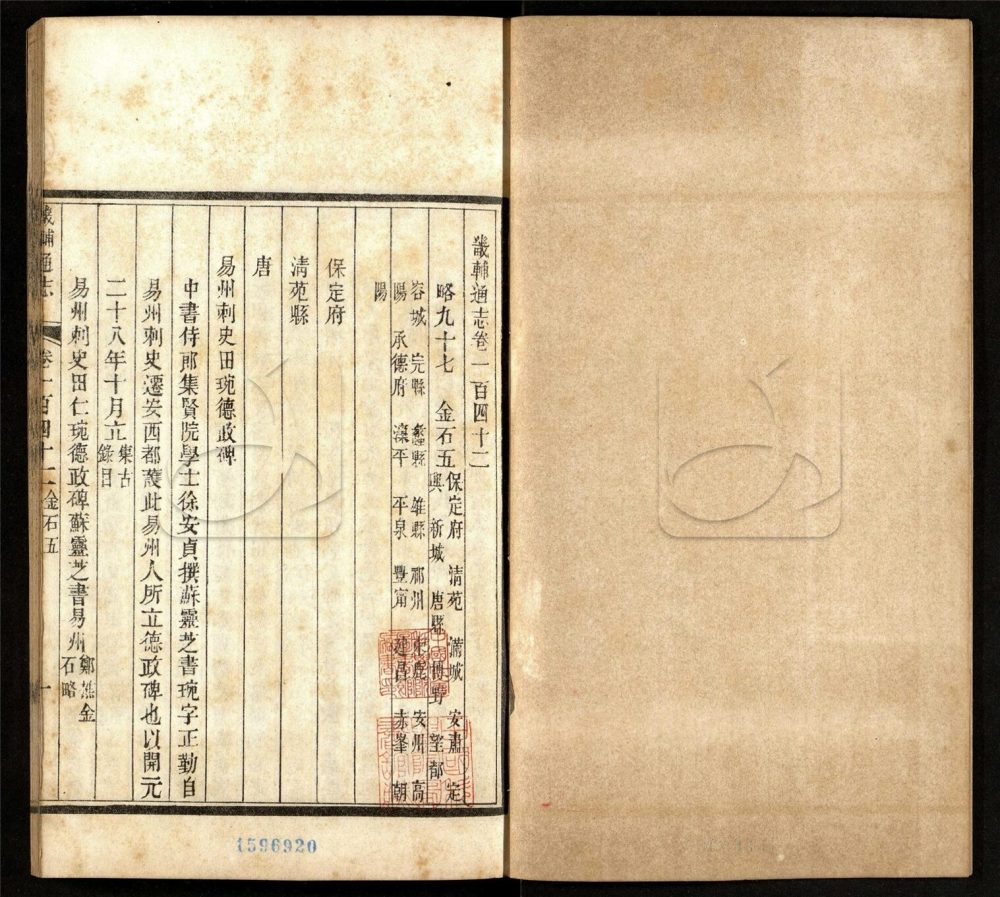 畿輔通志卷一百四十二
略九十七 金石五
保定府 清苑 滿城 安肅 定
興 新城 唐縣 博野 望都
容城 完縣 蠡縣 雄縣 祁州 束鹿 安州 高
陽 承德府 灤平 平泉 豐甯 建昌 赤峯 朝
陽
保定府
清苑縣
唐
易州刺史田琬德政碑
中書侍郎集賢院學士徐安貞撰蘇靈芝書琬字正勤自
易州刺史遷安西都護此易州人所立德政碑也以開元
二十八年十月立集古
錄目
易州刺史田仁琬德政碑蘇靈芝書易州鄭樵金
石略
畿輔通志
卷一百四十二 金石五
一
1596920